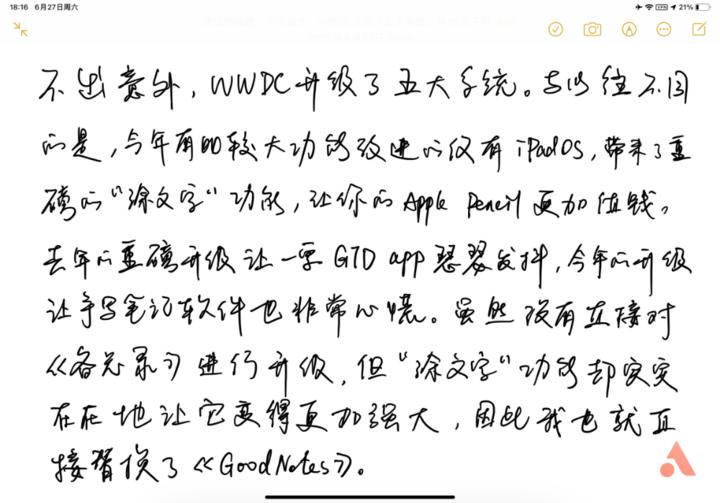 18:16 6月27日周六
VPN 21%
不出意外，WWDC升级了五大系统。与以往不同
的是，今年有的较大功能改进的仅有iPadOS，带来了重
磅的“涂文字”功能，让你的Apple Pencil更加值钱。
去年的重磅升级让一众GTD app瑟瑟发抖，今年的升级
让手写笔记软件也非常心慌。虽然没有直接对
《备忘录》进行升级，但“涂文字”功能却实实
在在地让它变得更加强大，因此我也就直
接替换了《GoodNotes》。